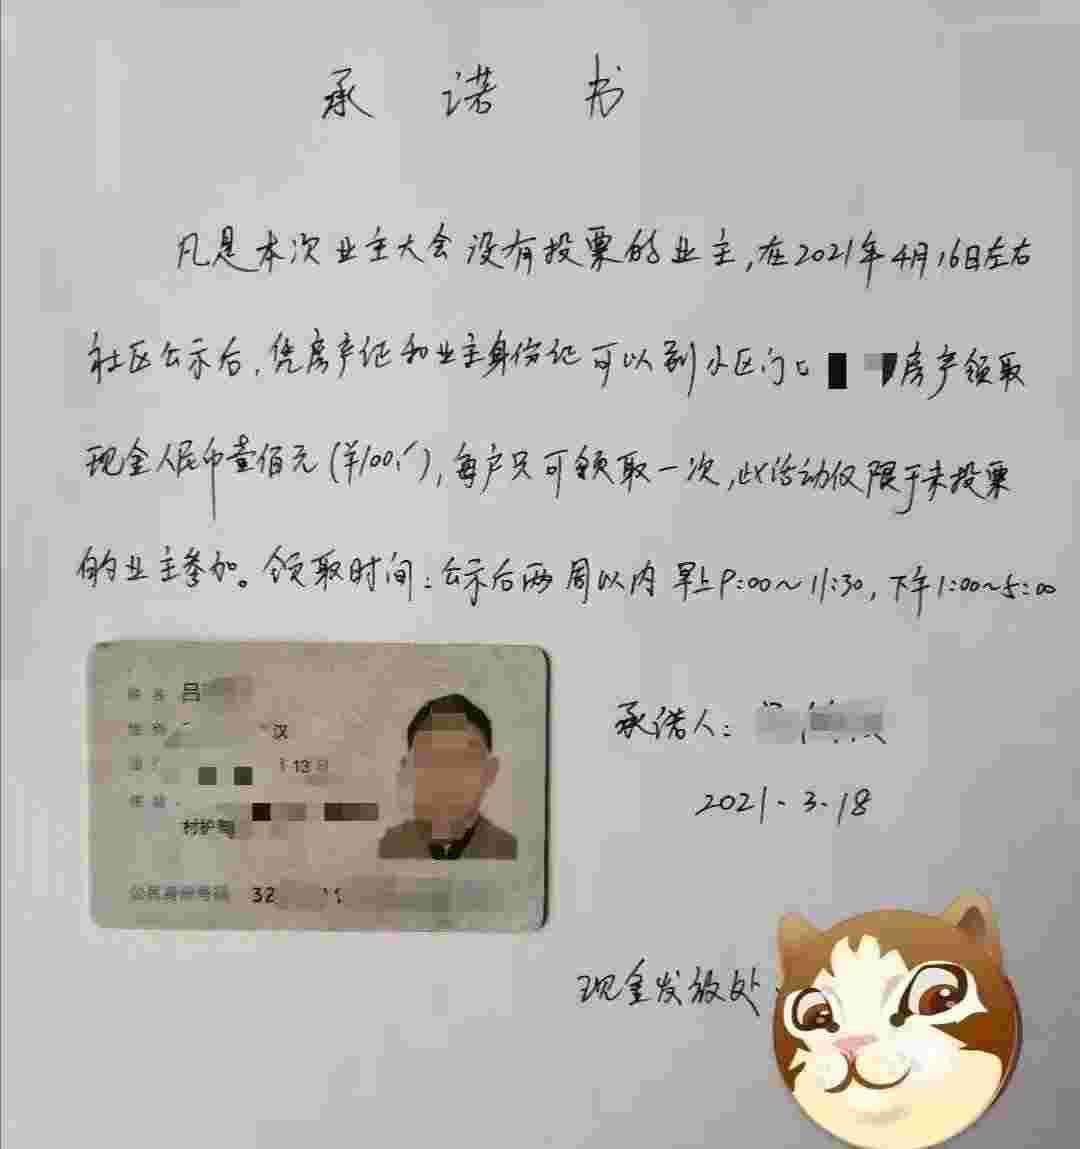 承 诺 书
凡是本次业主大会没有投票的业主,在2021年4月16日左右
社区公示后,凭房产证和业主身份证可以到小区门口 房产领取
现金人民币壹佰元(¥100.-),每户只可领取一次,此活动仅限于未投票
的业主参加。领取时间:公示后两周以内 早上9:00~11:30,下午1:00~5:00
姓名 吕
性别 汉
13日
住址
村护
公民身份号码 32 11
承诺人:
2021.3.18
现金发放处